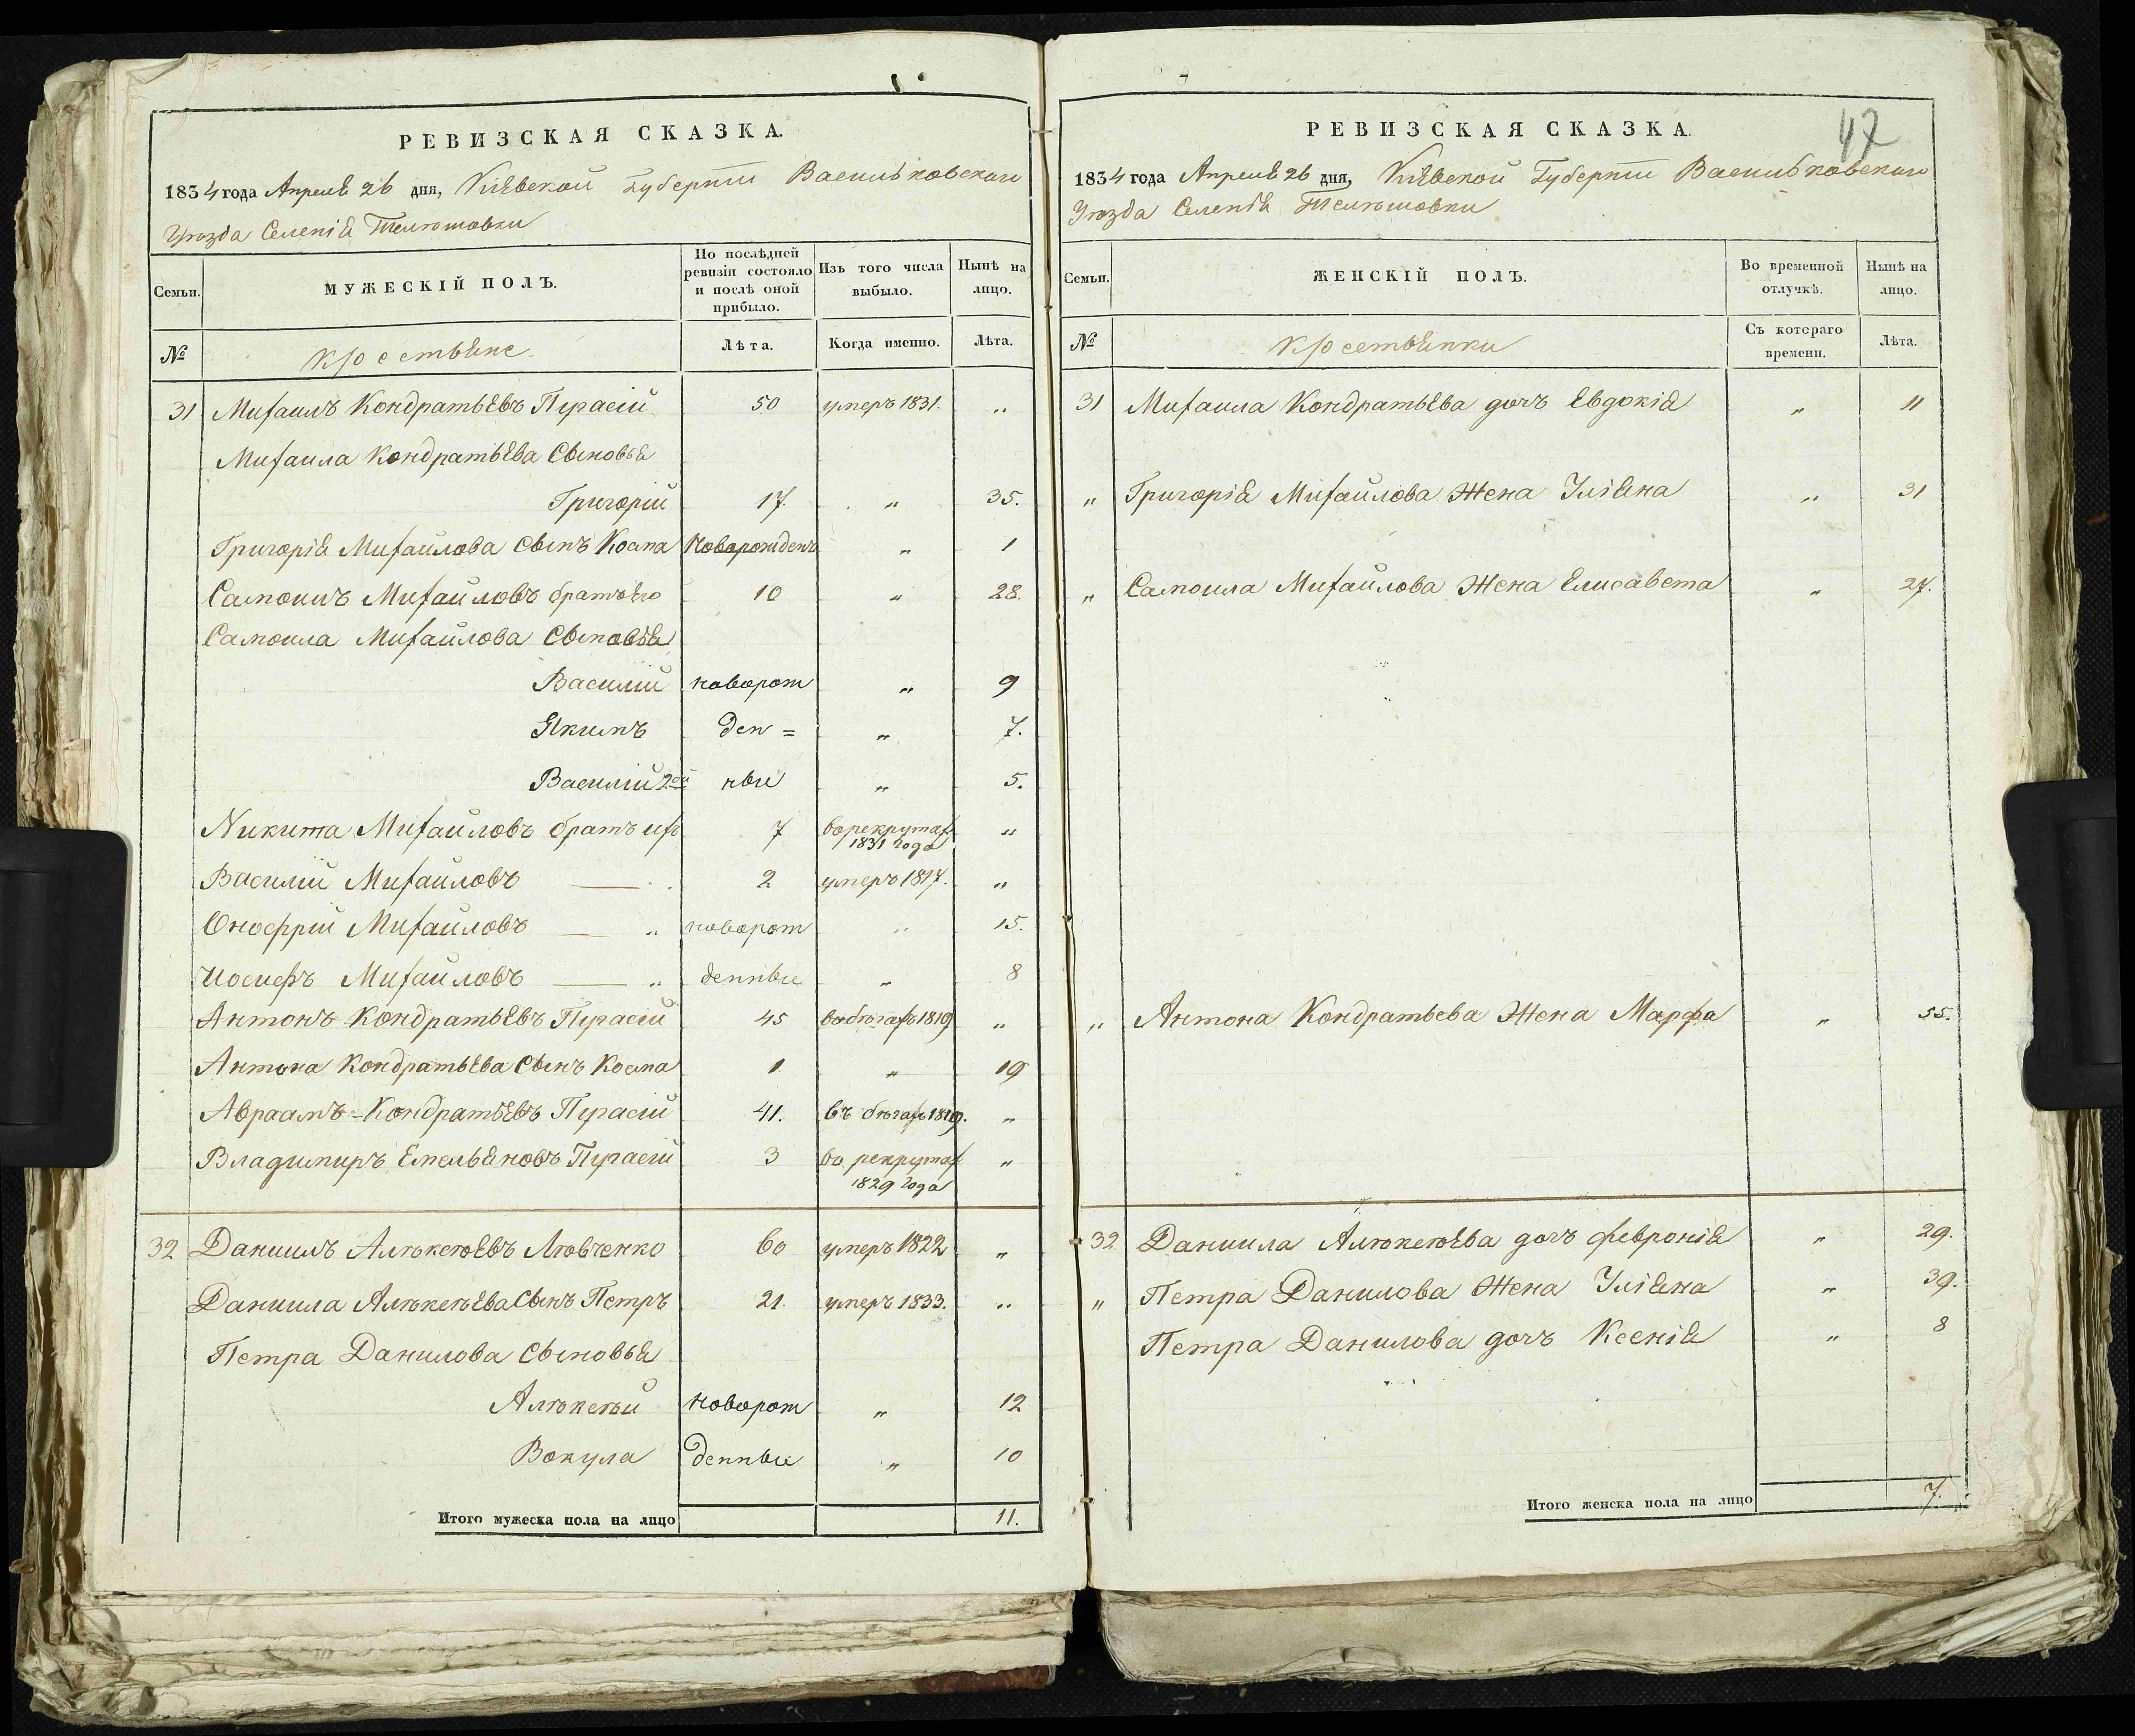 РЕВИЗСКАЯ СКАЗКА.
1834 года Апреля 26 дня, Кіевской Губерніи Васильковскаго
Уѣзда Селенія Телѣшовки
Семьи.
МУЖЕСКІЙ ПОЛЪ.
По послѣдней ревизіи состояло и послѣ оной прибыло.
Изъ того числа выбыло.
Нынѣ на лицо.
№
крестьяне
Лѣта.
Когда именно.
Лѣта.
31 Михаилъ Кондратьевъ 50 умеръ 1831. „
Михаила Кондратьева Сыновья
Григорій 17. „ 35.
Григорія Михайлова Сынъ Косма Новорожденъ „ 1
Самоилъ Михайловъ братъ Его 10 „ 28.
Самоила Михайлова Сыновья
Василій новорож „ 9
Якимъ ден= „ 7.
Василій 2ой ные „ 5.
Никита Михайловъ братъ ихъ 7 в рекрутах 1831 года „
Василій Михайловъ — „ 2 умеръ 1817. „
Онофрій Михайловъ — „ новорож „ 15.
Иосифъ Михайловъ — „ денные „ 8
Антонъ Кондратьевъ 45 в бѣгахъ 1819 „
Антона Кондратьева Сынъ Косма 1 „ 19
Авраамъ Кондратьевъ 41. въ бѣгахъ 1819. „
Владимиръ Емельяновъ 3 в рекрутах 1829 года „
32 Даниилъ Алѣксѣевъ Любченко 60 умеръ 1822 „
Даниила Алѣксѣева Сынъ Петръ 21. умеръ 1833. „
Петра Данилова Сыновья
Алѣксѣй новорож „ 12
Вокула денные „ 10
Итого мужеска пола на лицо 11.
47
РЕВИЗСКАЯ СКАЗКА.
1834 года Апреля 26 дня, Кіевской Губерніи Васильковскаго
Уѣзда Селенія Телѣшовки
Семьи.
ЖЕНСКІЙ ПОЛЪ.
Во временной отлучкѣ.
Нынѣ на лицо.
№
крестьянки
Съ котораго времени.
Лѣта.
31 Михаила Кондратьева дочъ Евдокія „ 11
„ Григорія Михайлова Жена Уліяна „ 31
„ Самоила Михайлова Жена Елисавета „ 27.
„ Антона Кондратьева Жена Марфа „ 55.
32 Даниила Алѣксѣева дочъ Февронія „ 29.
„ Петра Данилова Жена Уліяна „ 39.
Петра Данилова дочъ Ксенія „ 8
Итого женска пола на лицо 7.